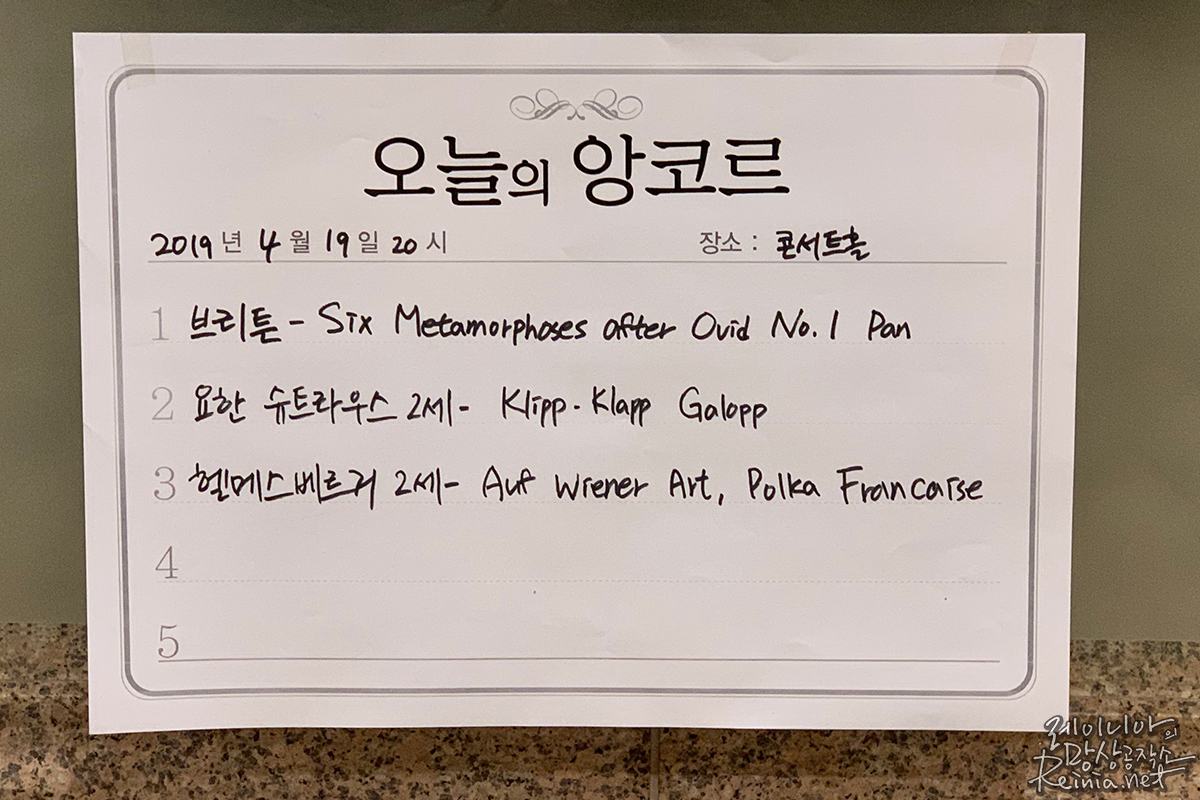 오늘의 앙코르
2019년 4월 19일 20시 장소 : 콘서트홀
1 브리튼 - Six Metamorphoses after Ovid No. 1 Pan
2 요한 슈트라우스 2세 - Klipp-Klapp Galopp
3 헬메스베르거 2세 - Auf Wiener Art, Polka Francaise
4
5
레이니아의
망상공작소
Reinia.net